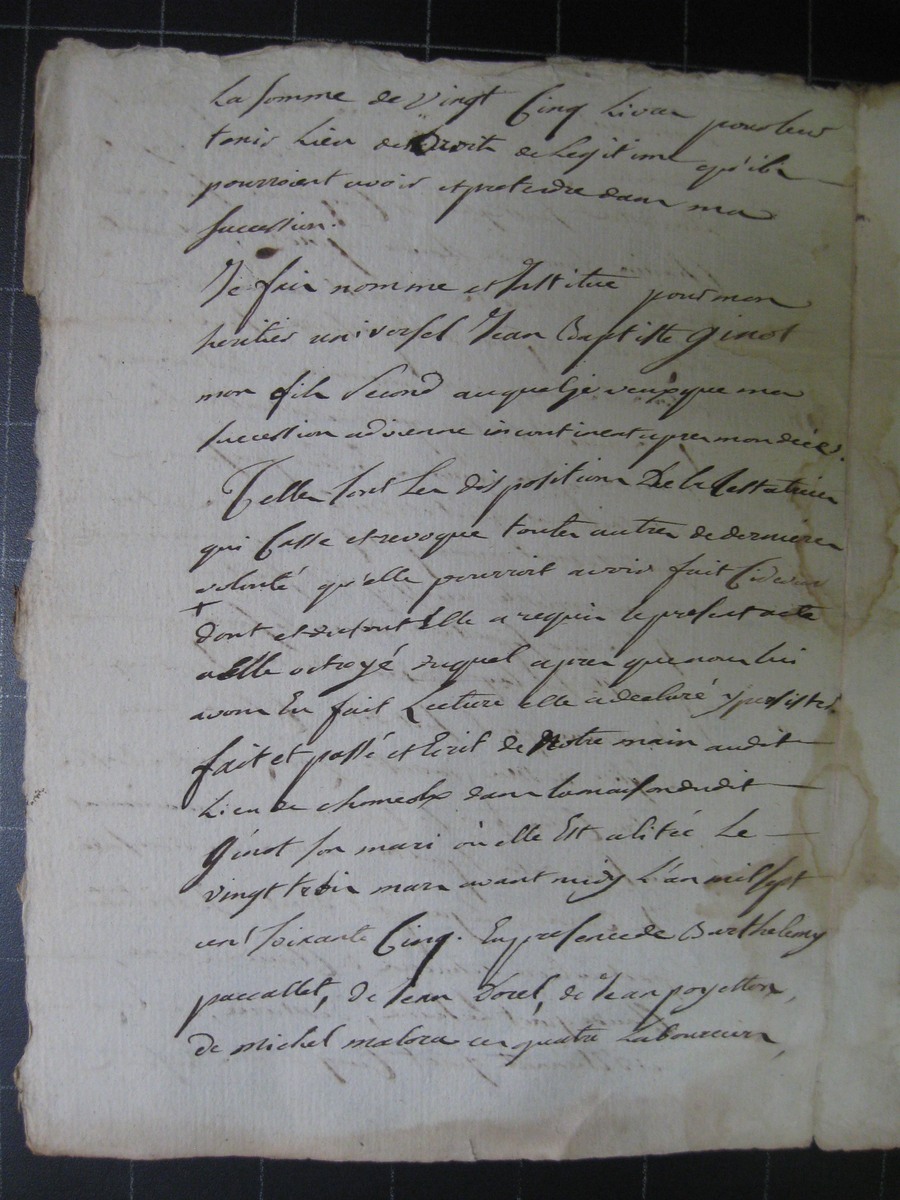 la somme de vingt Cinq Livres pour leur
tenir Lieu des Droits de Legitime qu'ils
pourroient avoir et pretendre dans ma
succession.
Je fais nomme et Institue pour mon
heritier universel Jean Baptiste Ginot
mon fils Second auquel je veux que ma
succession advienne incontinent apres mon décés.
Telles sont Les dispositions De la testatrice
qui Casse et revoque toutes autres de dernieres
volonté qu'elle pourroit avoir fait Cidevant
dont et du tout Elle a requis le present acte
a Elle octroyé duquel apres que nous lui
avons En fait Lecture elle a declaré y persister.
fait et passé et Ecrit de Notre main audit
Lieu de dans la maison dudit
Ginot son mari où elle Est alitée Le
vingt trois mars avant midy L'an mil sept
cent soixante Cinq. En presence de Barthelemy
paccallet, de Jean Dorel, de Jean poyetton,
de michel ces quatre Laboureurs,